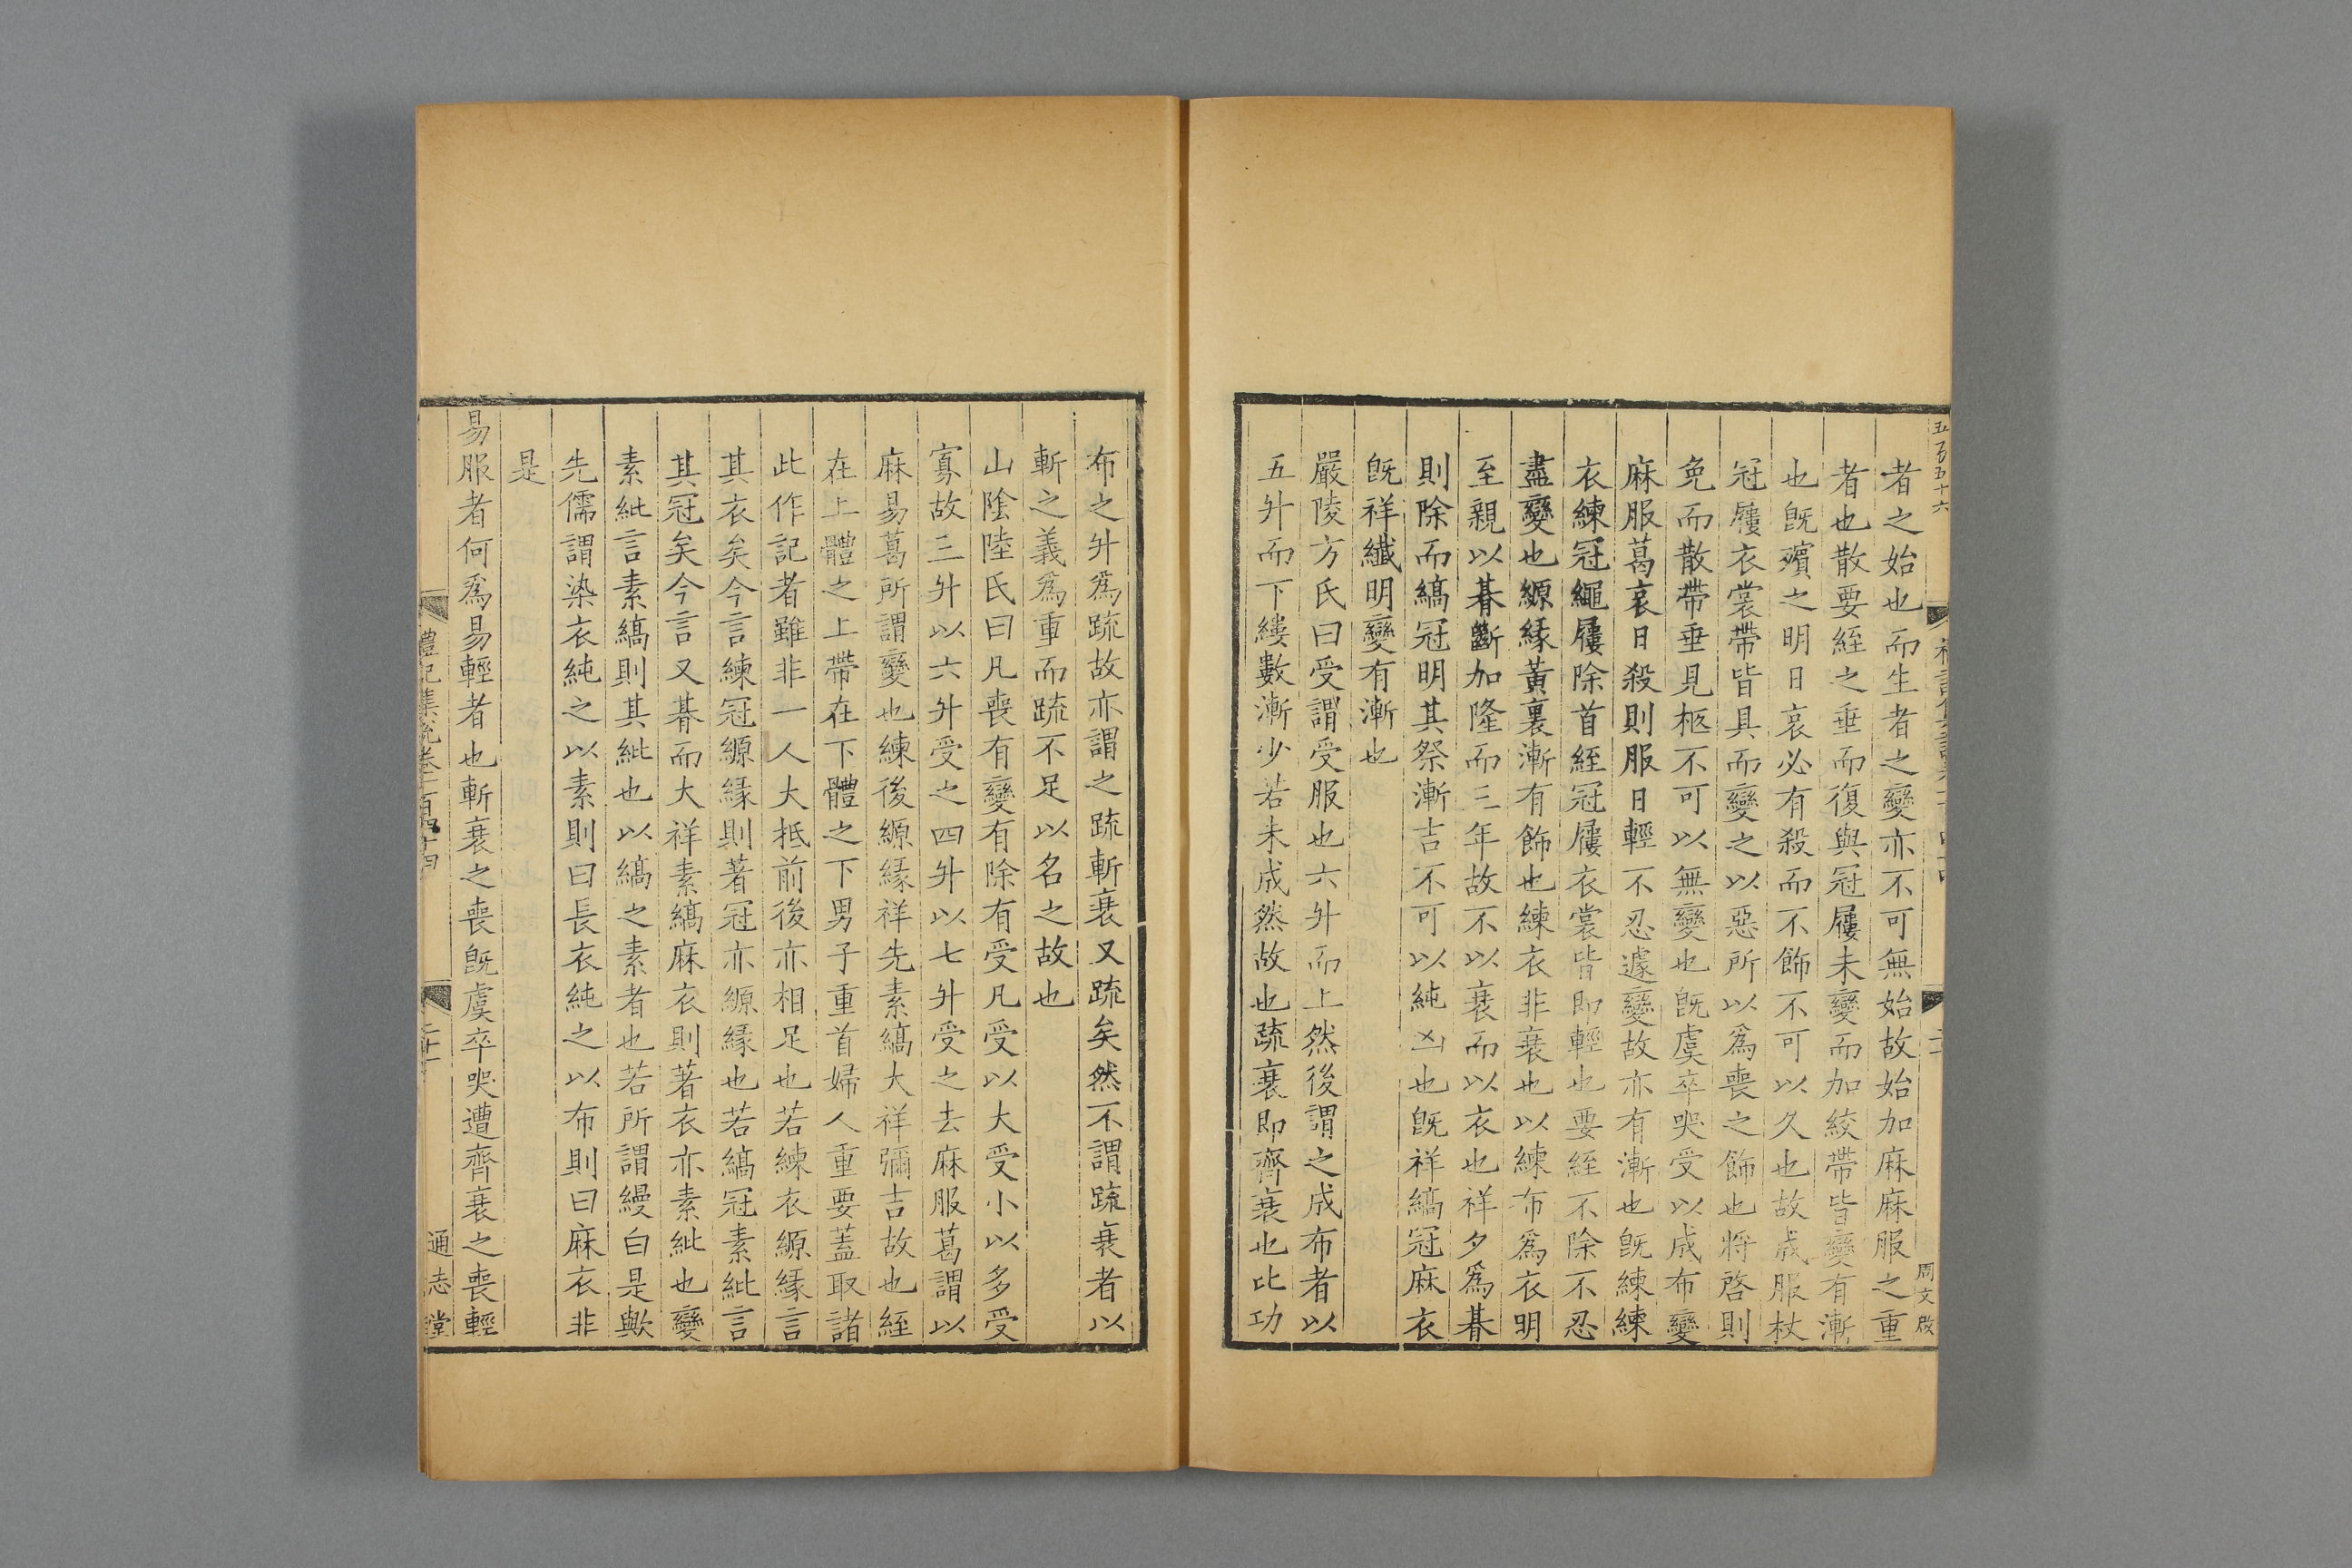 五百五十六
者之始也而生者之變亦不可無始故始加麻麻服之重
者也散要絰之垂而復與冠屨未變而加絞帶皆變有漸
也旣殯之明日哀必有殺而不飾不可以久也故成服杖
冠屨衣裳帶皆具而變之以惡所以爲喪之飾也將啓則
免而散帶垂見柩不可以無變也旣虞卒哭受以成布變
麻服葛哀日殺則服日輕不忍遽變故亦有漸也旣練練
衣練冠繩屨除首絰冠屨衣裳皆卽輕也要絰不除不忍
盡變也縓緣黃裏漸有飾也練衣非衰也以練布爲衣明
至親以朞斷加隆而三年故不以衰而以衣也祥夕爲朞
則除而縞冠明其祭漸吉不可以純凶也旣祥縞冠麻衣
旣祥纖明變有漸也
嚴陵方氏曰受謂受服也六升而上然後謂之成布者以
五升而下縷數漸少若未成然故也疏衰卽齊衰也比功
周文啟
布之升爲疏故亦謂之疏斬衰又疏矣然不謂疏衰者以
斬之義爲重而疏不足以名之故也
山陰陸氏曰凡喪有變有除有受凡受以大受小以多受
寡故三升以六升受之四升以七升受之去麻服葛謂以
麻易葛所謂變也練後縓緣祥先素縞大祥彌吉故也絰
在上體之上帶在下體之下男子重首婦人重要蓋取諸
此作記者雖非一人大抵前後亦相足也若練衣縓緣言
其衣矣今言練冠縓緣則著冠亦縓緣也若縞冠素紕言
其冠矣今言又朞而大祥素縞麻衣則著衣亦素紕也變
素紕言素縞則其紕也以縞之素者也若所謂縵白是歟
先儒謂染衣純之以素則曰長衣純之以布則曰麻衣非
是
易服者何爲易輕者也斬衰之喪旣虞卒哭遭齊衰之喪輕
禮記集說卷一百四十四
二十一
通志堂